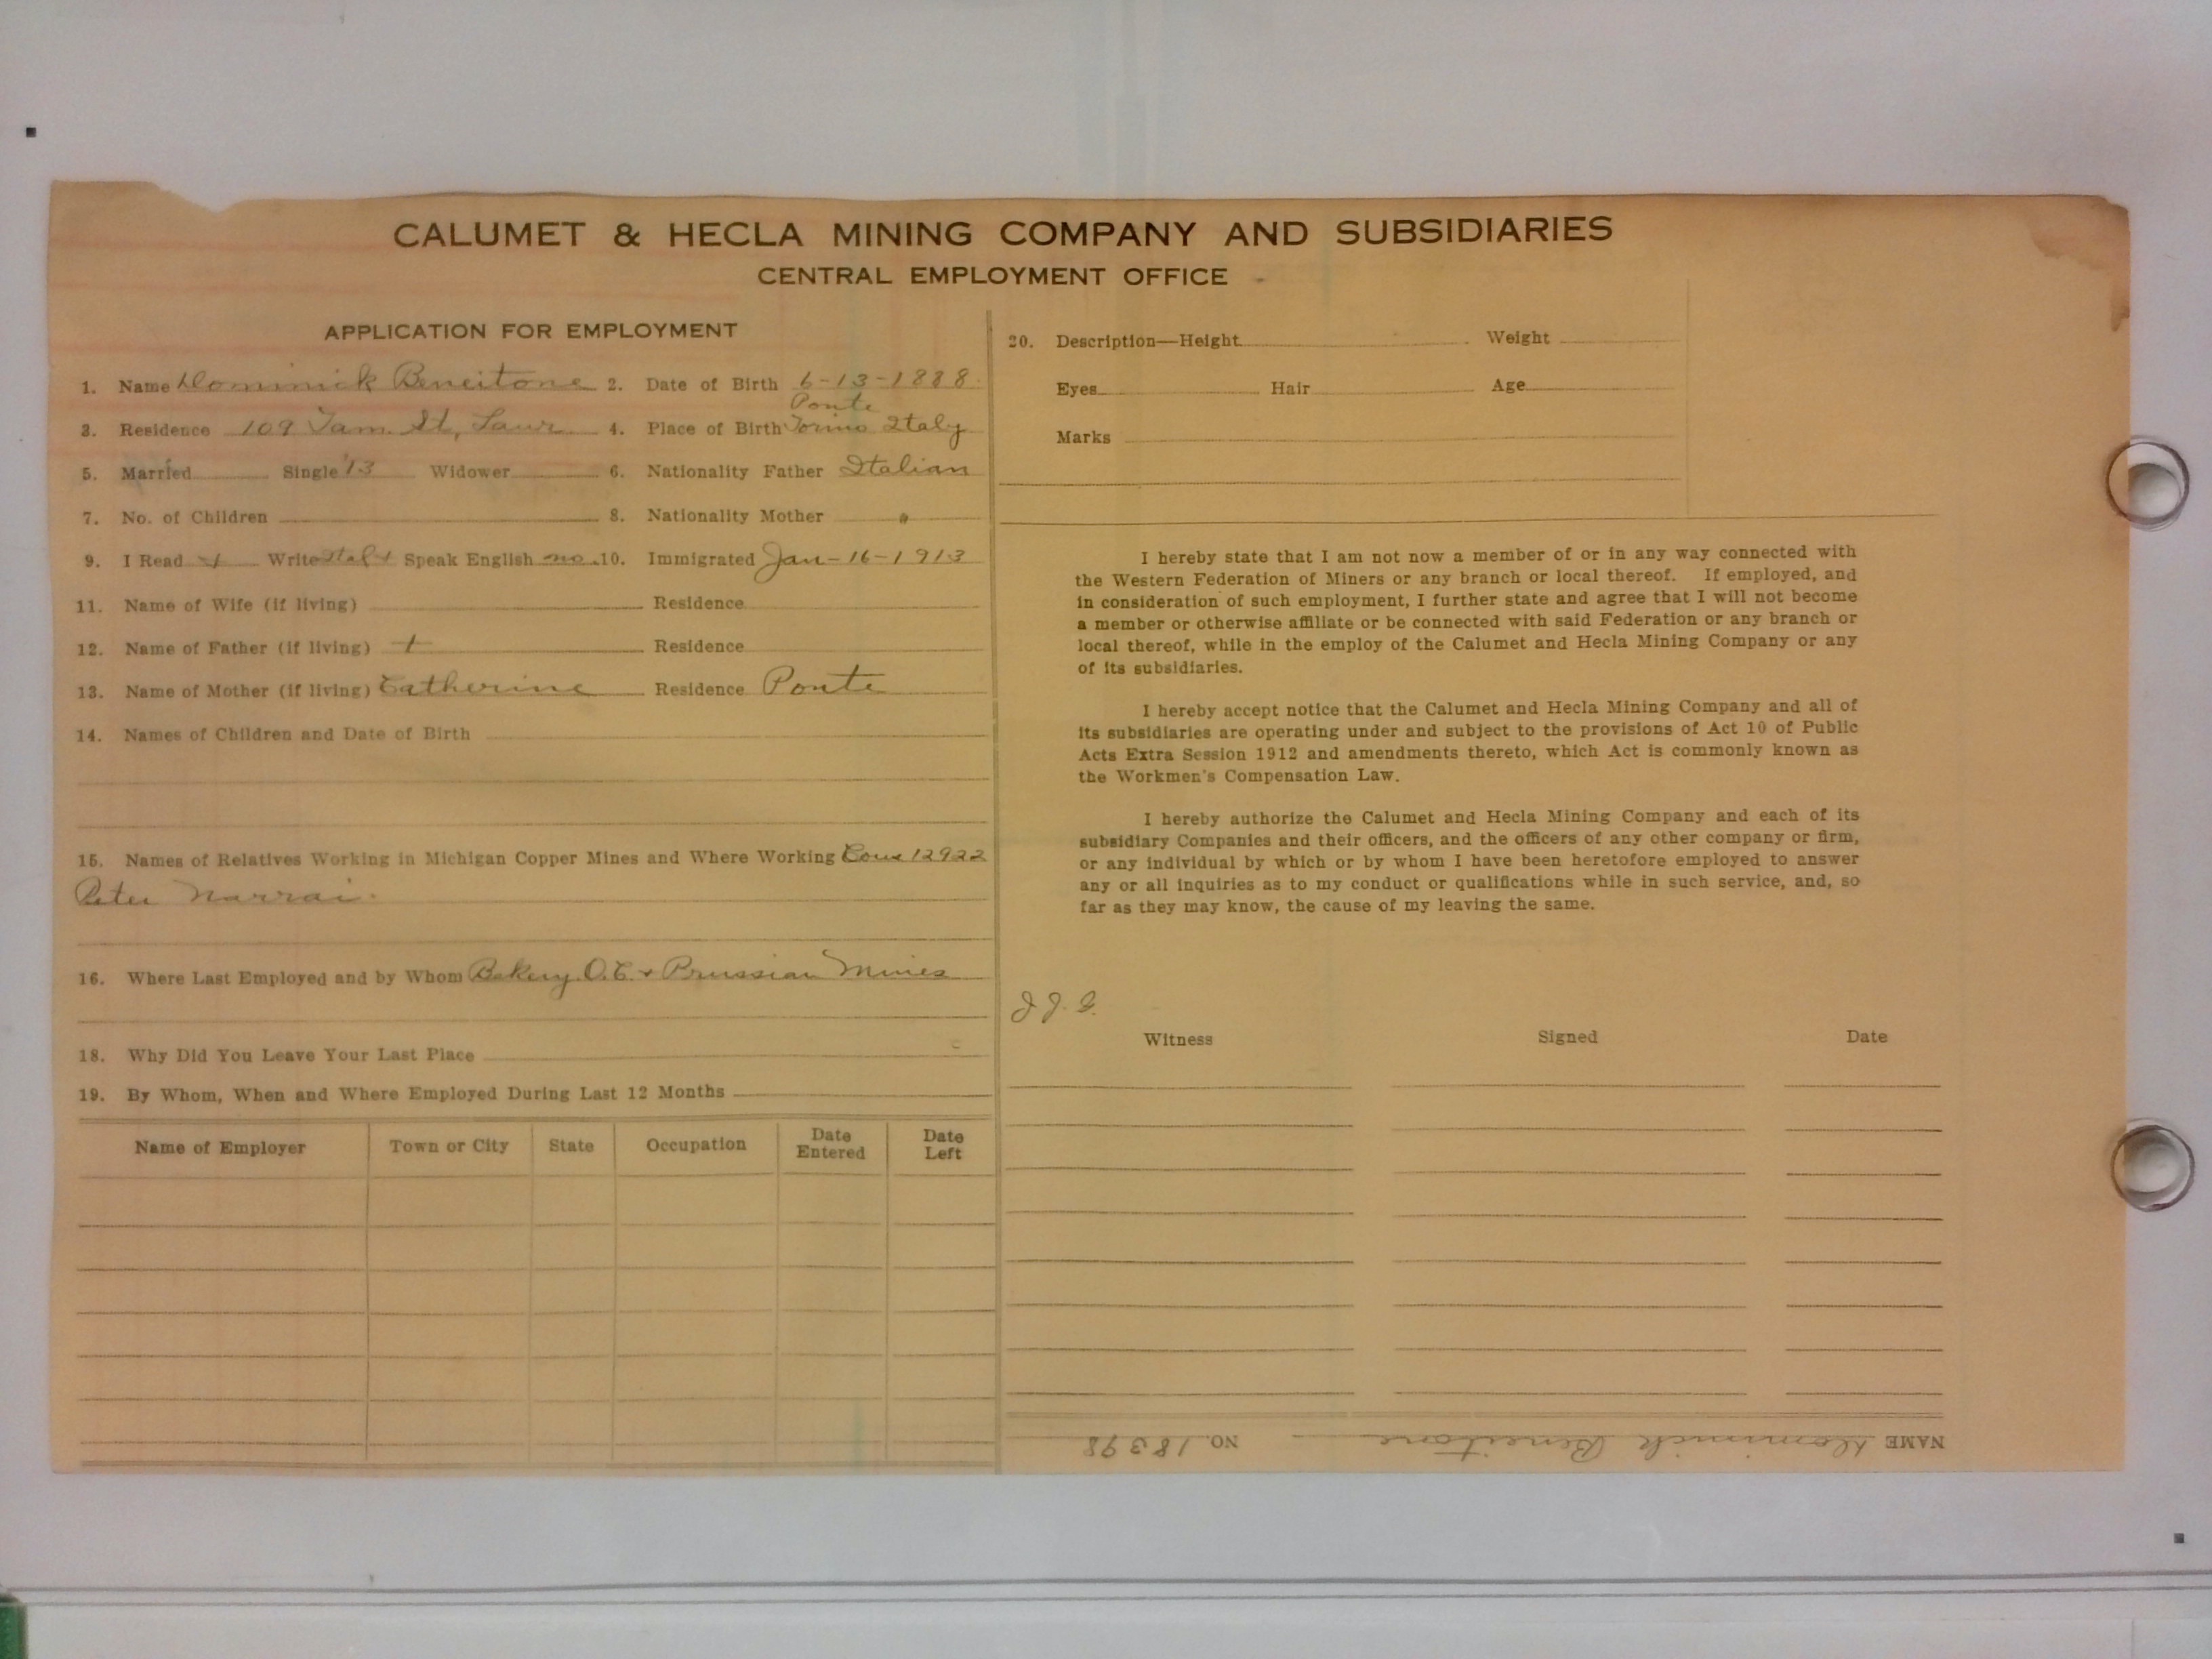 CALUMET & HECLA MINING COMPANY AND SUBSIDIARIES
CENTRAL EMPLOYMENT OFFICE
APPLICATION FOR EMPLOYMENT
1. Name Dominick Beneitone 2. Date of Birth 6-13-1888.
Ponte
3. Residence 109 Tam. St, Laur. 4. Place of Birth Torino Italy
5. Married Single '13 Widower 6. Nationality Father Italian
7. No. of Children 8. Nationality Mother "
9. I Read + Write Ital + Speak English no. 10. Immigrated Jan-16-1913
11. Name of Wife (if living) Residence
12. Name of Father (if living) + Residence
13. Name of Mother (if living) Catherine Residence Ponte
14. Names of Children and Date of Birth
15. Names of Relatives Working in Michigan Copper Mines and Where Working Cous 12922
Peter
16. Where Last Employed and by Whom Bakery. O.C. + Prussian Mines
18. Why Did You Leave Your Last Place
19. By Whom, When and Where Employed During Last 12 Months
Name of Employer Town or City State Occupation Date Entered Date Left
20. Description—Height Weight
Eyes Hair Age
Marks
I hereby state that I am not now a member of or in any way connected with
the Western Federation of Miners or any branch or local thereof. If employed, and
in consideration of such employment, I further state and agree that I will not become
a member or otherwise affiliate or be connected with said Federation or any branch or
local thereof, while in the employ of the Calumet and Hecla Mining Company or any
of its subsidiaries.
I hereby accept notice that the Calumet and Hecla Mining Company and all of
its subsidiaries are operating under and subject to the provisions of Act 10 of Public
Acts Extra Session 1912 and amendments thereto, which Act is commonly known as
the Workmen's Compensation Law.
I hereby authorize the Calumet and Hecla Mining Company and each of its
subsidiary Companies and their officers, and the officers of any other company or firm,
or any individual by which or by whom I have been heretofore employed to answer
any or all inquiries as to my conduct or qualifications while in such service, and, so
far as they may know, the cause of my leaving the same.
J.J.G.
Witness Signed Date
NAME Dominick Beneitone NO. 18398